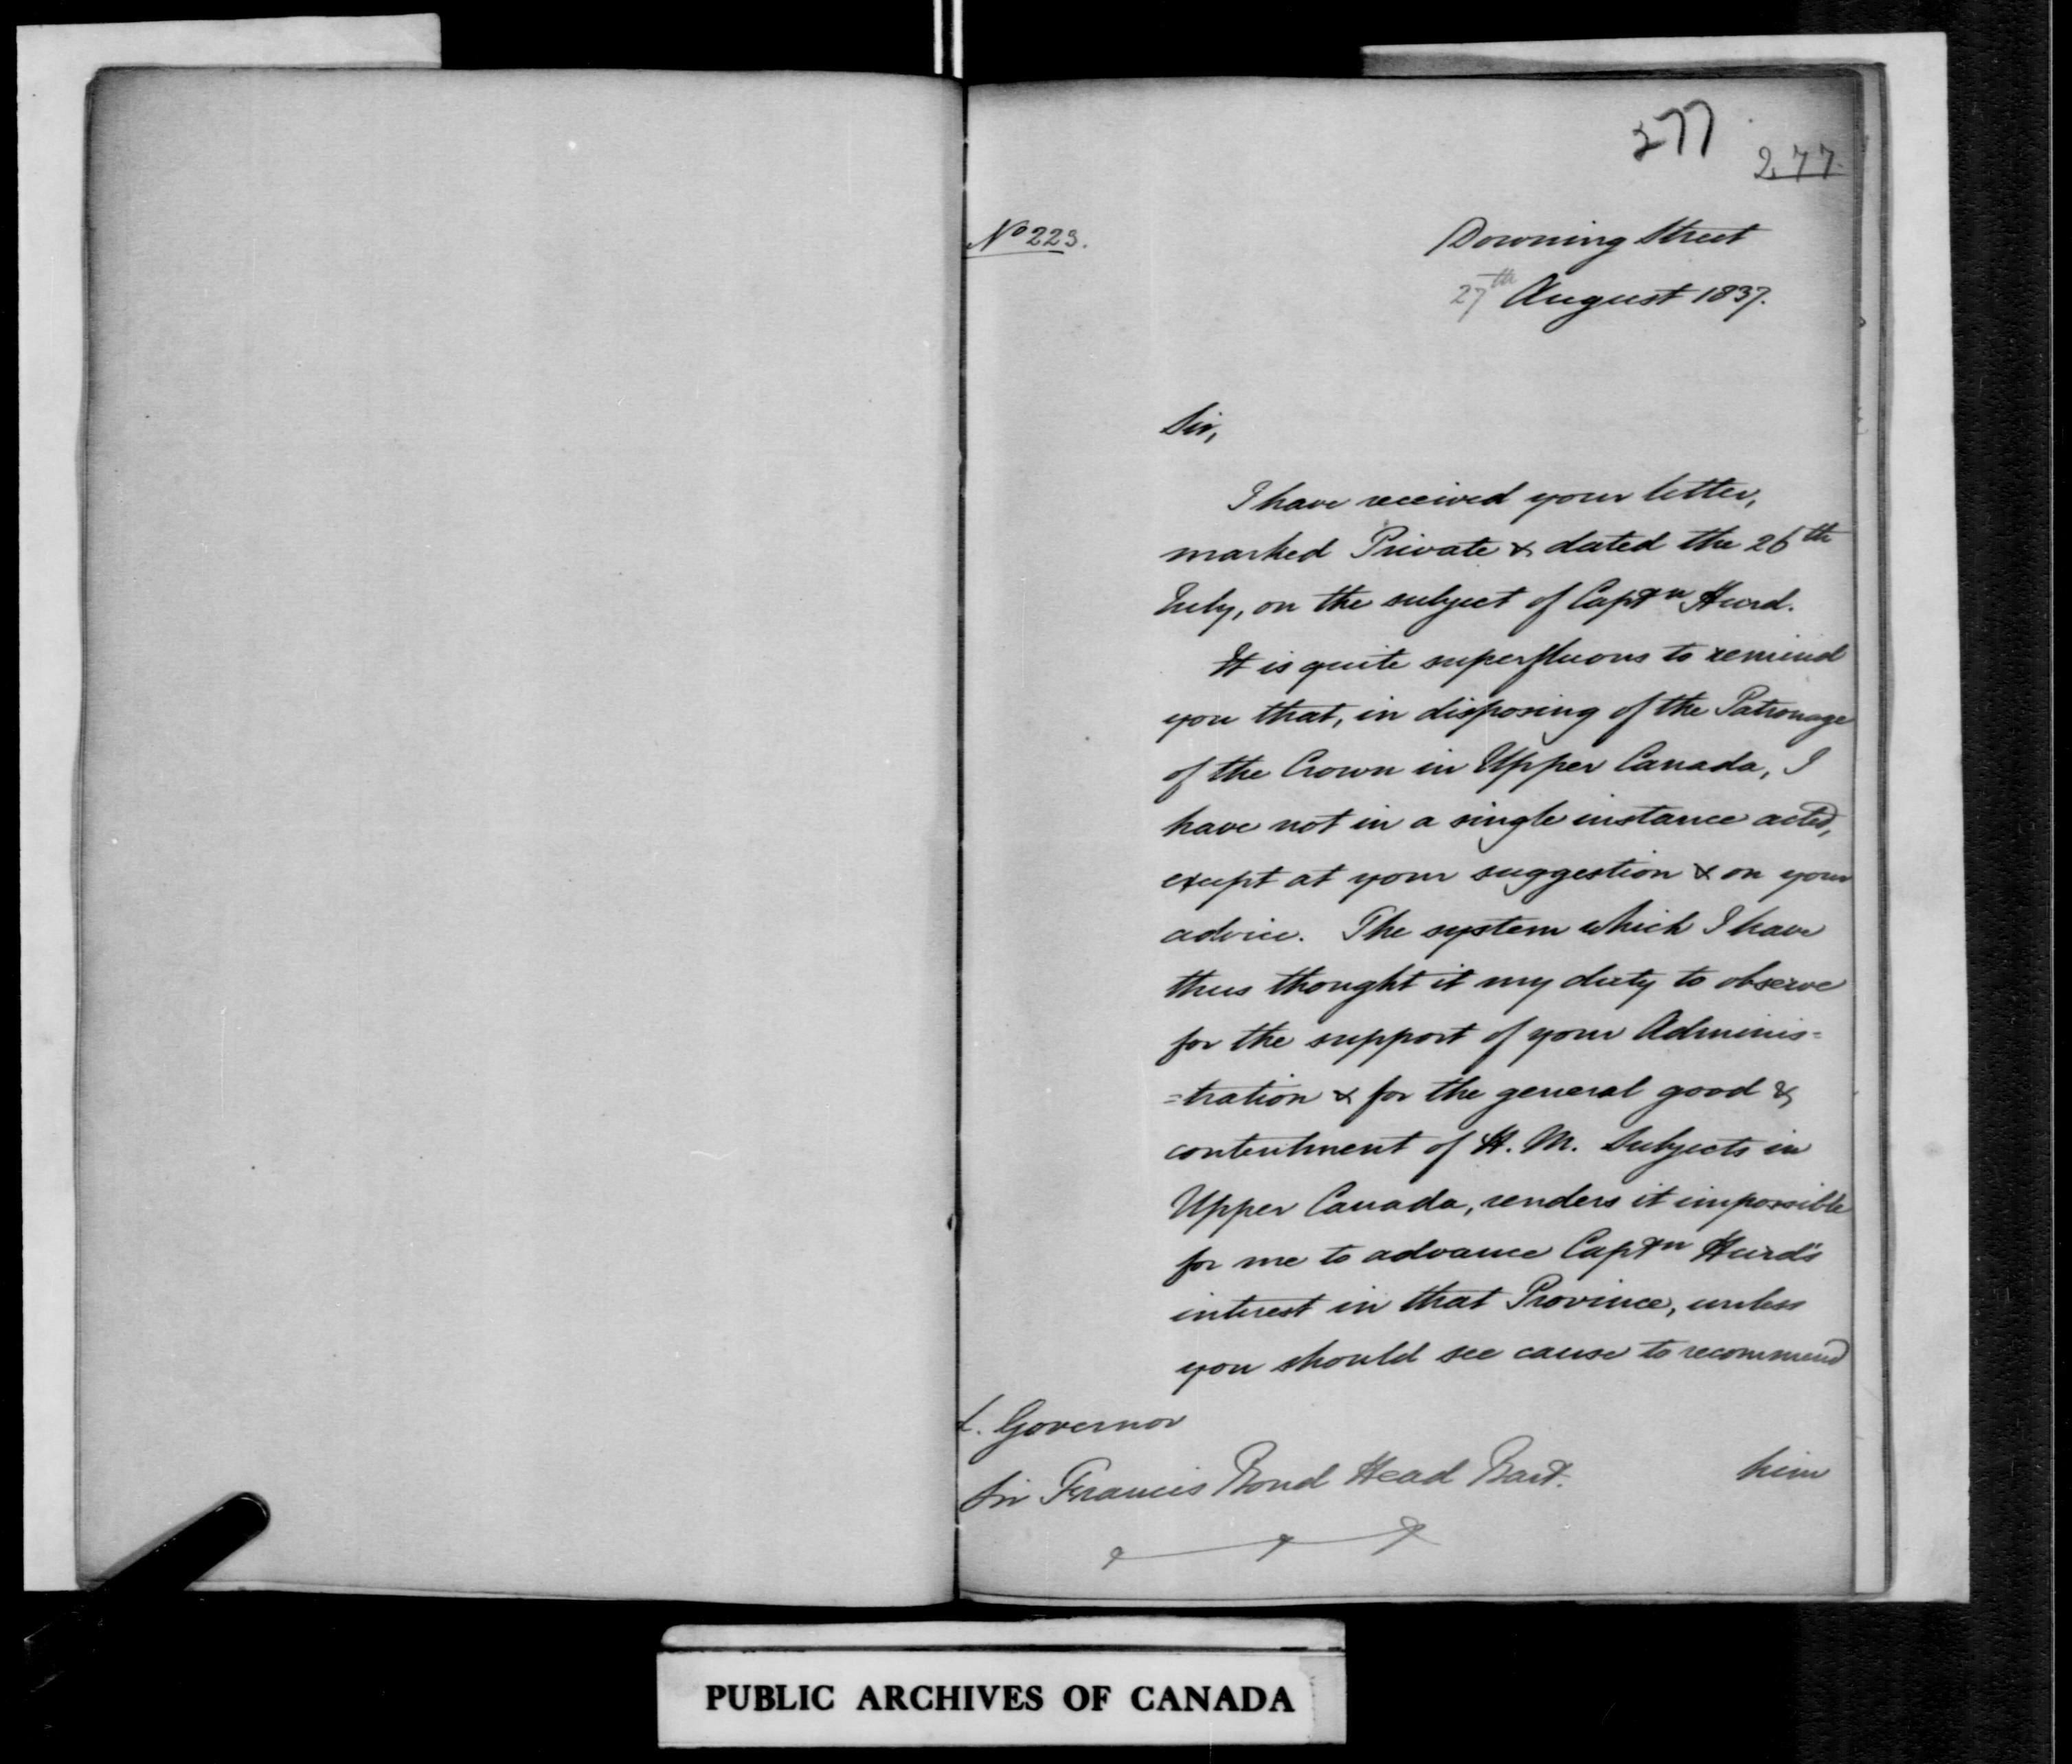 277
277.
No 223.
Downing Street
27th August 1837.
Sir,
I have received your letter,
marked Private & dated the 26th
July, on the subject of Captn Hurd.
It is quite superfluous to remind
you that, in disposing of the Patronage
of the Crown in Upper Canada, I
have not in a single instance acted,
except at your suggestion & on your
advice. The system which I have
thus thought it my duty to observe
for the support of your Adminis=
=tration & for the general good &
contentment of H. M. Subjects in
Upper Canada, renders it impossible
for me to advance Captn Hurd's
interest in that Province, unless
you should see cause to recommend
him
Lt. Governor
Sir Francis Bond Head Bart.
PUBLIC ARCHIVES OF CANADA